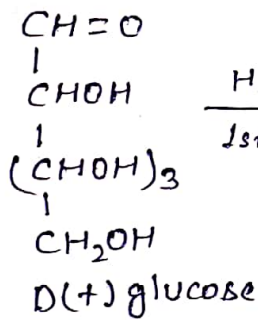 CH=O
CHOH
H
(CHOH)3
CH2OH
D(+) glucose